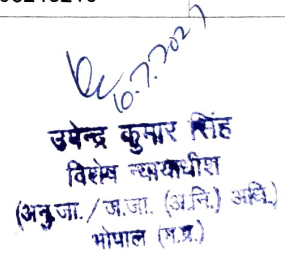 16.7.2021
उपेन्द्र कुमार सिंह
विशेष न्यायाधीश
(अनु.जा./ज.जा. (अ.नि.) अधि.)
भोपाल (म.प्र.)